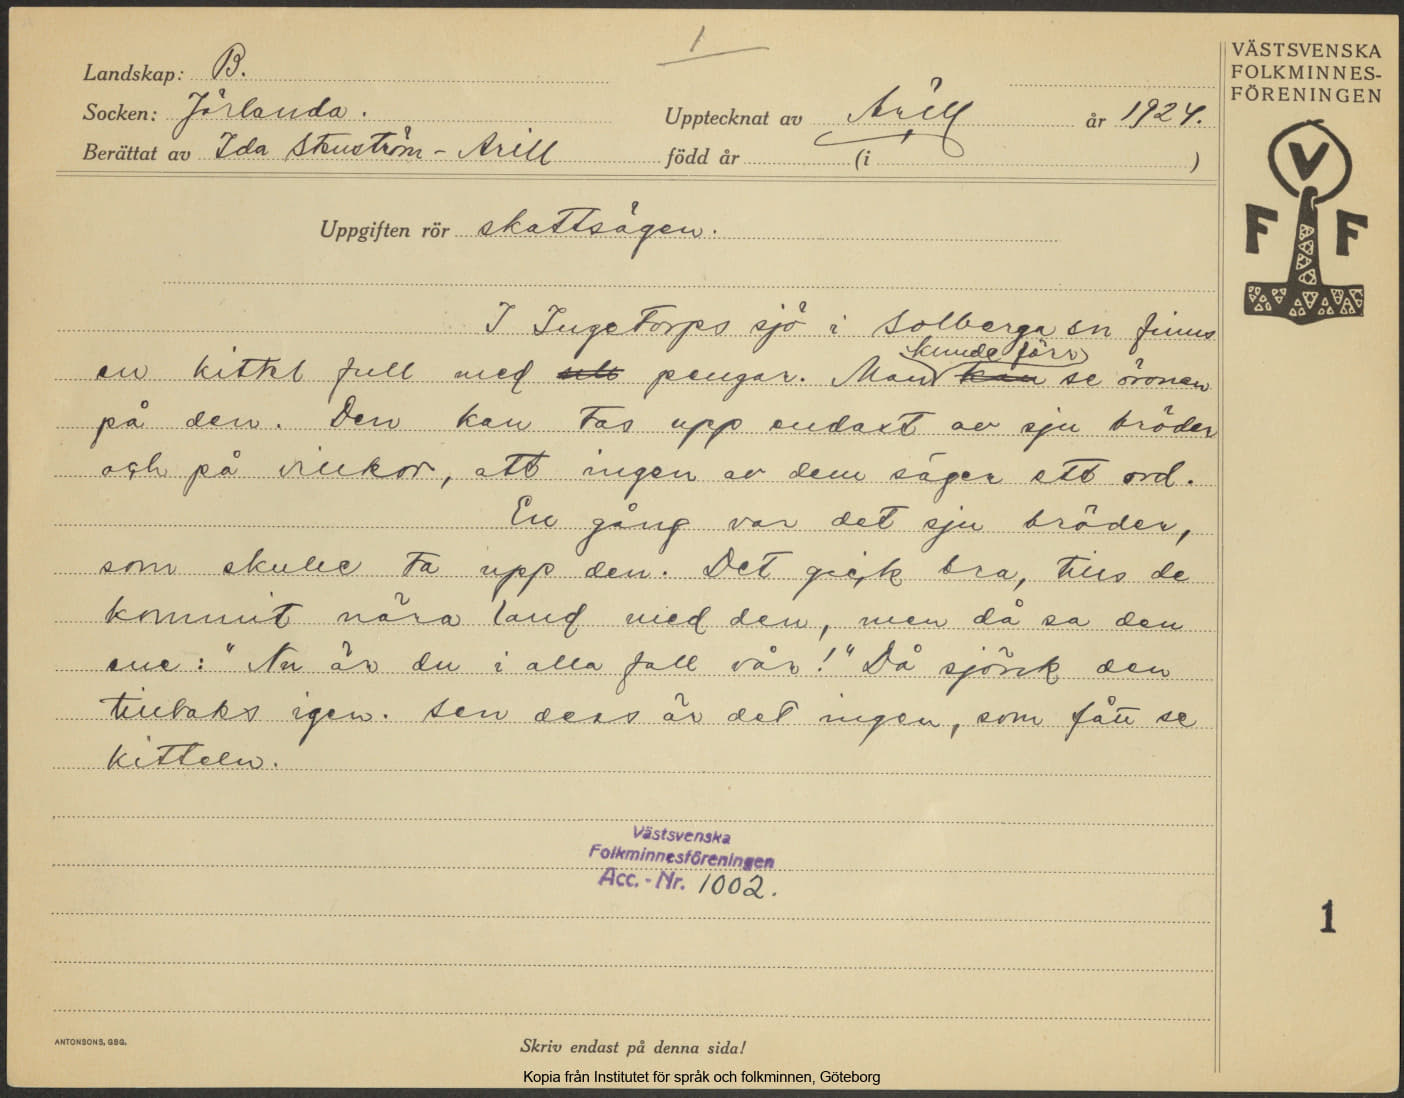 1
VÄSTSVENSKA
FOLKMINNES-
FÖRENINGEN
V
F F
Landskap: B.
Socken: Jörlanda. Upptecknat av Arill år 1924.
Berättat av Ida Stenström - Arill född år (i )
Uppgiften rör skattsägen.
I Ingetorps sjö i Solberga sn finns
en kittel full med pengar. Man kunde förr se öronen
på den. Den kan tas upp endast av sju bröder
och på villkor, att ingen av dem säger ett ord.
En gång var det sju bröder,
som skulle ta upp den. Det gick bra, tills de
kommit nära land med den, men då sa den
ene: "Nu är du i alla fall vår!" Då sjönk den
tillbaks igen. Sen dess är det ingen, som fått se
kitteln.
Västsvenska
Folkminnesföreningen
Acc. - Nr. 1002.
1
ANTONSONS, GBG.
Skriv endast på denna sida!
Kopia från Institutet för språk och folkminnen, Göteborg